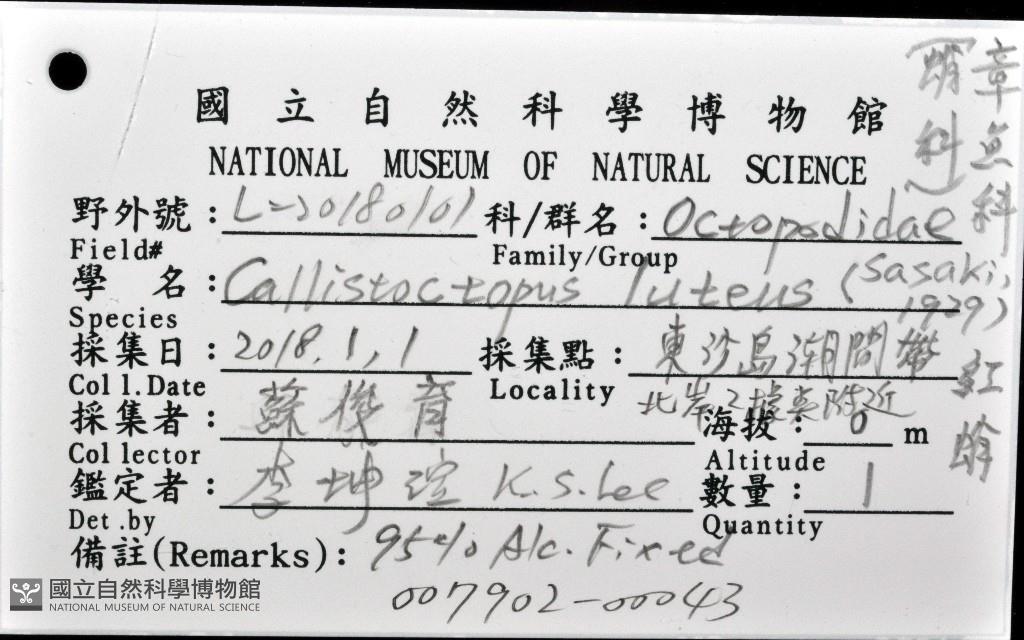 國立自然科學博物館
NATIONAL MUSEUM OF NATURAL SCIENCE
野外號：L-20180101 科/群名：Octopodidae
Field# Family/Group
章魚科
(蛸科)
學 名：Callistoctopus luteus (Sasaki, 1929)
Species
紅蛸
採集日：2018.1.1 採集點：東沙島潮間帶
Coll.Date Locality 北岸2據點附近
採集者：蘇俊育 海拔：0 m
Collector Altitude
鑑定者：李坤瑄 K.S.Lee 數量：1
Det.by Quantity
備註(Remarks)：95% Alc. Fixed
007902-00043
國立自然科學博物館
NATIONAL MUSEUM OF NATURAL SCIENCE